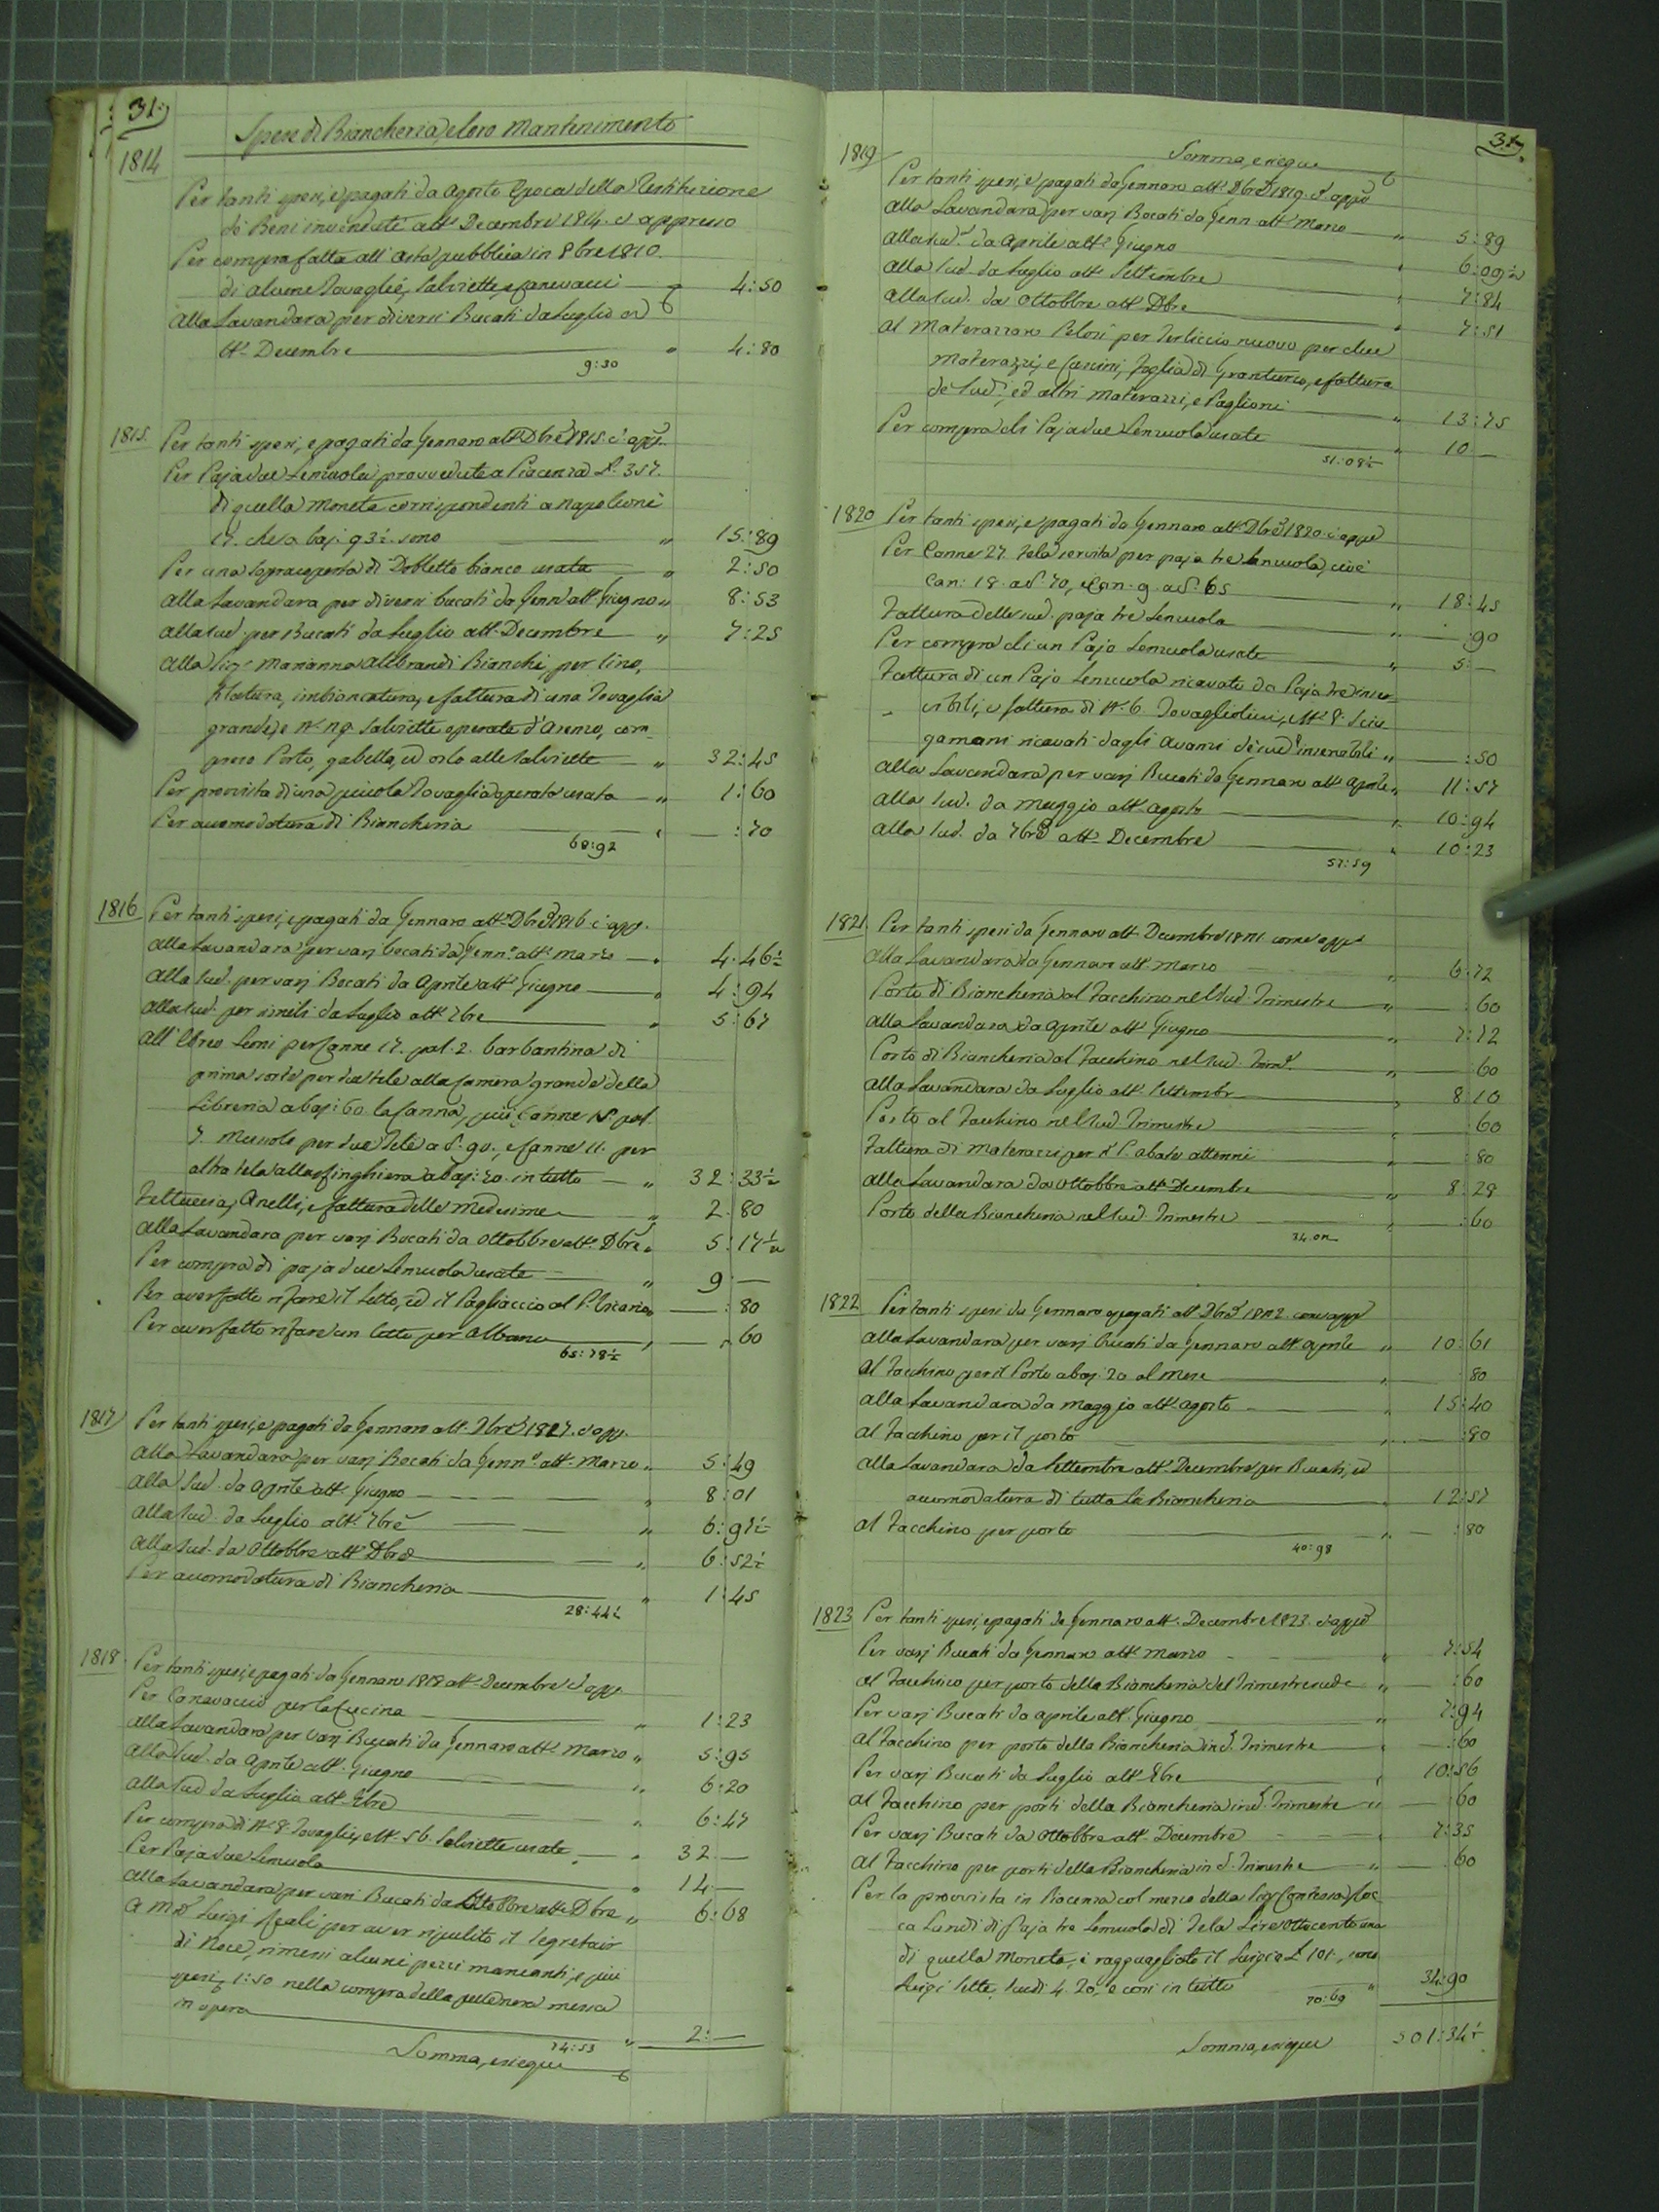 31
Spese di Biancheria, e loro Mantenimento
1814
Per tanti spesi, e pagati da Agosto Epoca della Restituzione
di Beni invenduti all' Decembre 1814. c. appresso
Per compra fatta all' Asta pubblica in 8bre 1810.
di alcune Tovaglie, Salviette, e Canevacci 4:50
Alla Lavandara per diversi Bucati da Luglio a
tt° Decembre " 4:80
9:30
1815. Per tanti spesi, e pagati da Gennaro a tt° Dbre 1815. c. app.
Per Paja due Lenzuola provvedute a Piacenza L. 357.
di quella Moneta corrispondenti a Napoleoni
17. che a baj. 93½ sono " 15:89
Per una sopracoperta di Dobletto bianco usata " 2:50
Alla Lavandara per diversi bucati da Genn° a tt° Giugno " 8:53
Alla sud. per Bucati da Luglio a tt° Decembre " 7:25
Alla Sig.ª Marianna Alibrandi Bianchi, per lino,
filatura, imbiancatura, e fattura di una Tovaglia
grande, e N° 12 Salviette operate d'Arenco, com-
preso Porto, gabella, ed orlo alle Salviette " 32:45
Per provvista di una piccola Tovaglia operata usata " 1:60
Per accomodatura di Biancheria " — :70
68:92
1816 Per tanti spesi, e pagati da Gennaro a tt° Dbre 1816 c. app.
Alla Lavandara per varj bucati da Genn° a tt° Marzo " 4:46½
Alla sud. per varj Bucati da Aprile a tt° Giugno " 4:94
Alla sud. per simili da Luglio a tt° 7bre " 5:67
All' Ebreo Leoni per Canne 17. pal. 2. barbantina di
prima sorte per due tele alla Camera grande della
Libreria a baj: 60 la Canna, più Canne 15. pal.
7. Mussolo per due Tele a S. 90., e Canne 11. per
altra tela alla Ringhiera a baj: 70. in tutto " 32:33½
Fettuccia, Anelli, e fattura delle Medesime " 2:80
Alla Lavandara per varj Bucati da Ottobbre a tt° Dbre " 5:17½
Per compra di paja due Lenzuola usate " 9:—
Per aver fatto rifare il Letto, ed il Pagliaccio al P. Vicario " — :80
Per aver fatto rifare un letto per Albano " — :60
65:78½
1817 Per tanti spesi, e pagati da Gennaro a tt° Dbre 1817. c. app.
Alla Lavandara per varj Bucati da Genn° a tt° Marzo " 5:49
Alla Sud. da Aprile a tt° Giugno " 8:01
Alla Sud. da Luglio a tt° 7bre " 6:97½
Alla Sud. da Ottobbre a tt° Dbre " 6:52½
Per accomodatura di Biancheria " 1:45
28:44½
1818 Per tanti spesi, e pagati da Gennaro 1818 a tt° Decembre c. app.
Per Canevaccio per la Cucina " 1:23
Alla Lavandara per varj Bucati da Gennaro a tt° Marzo " 5:95
Alla Sud. da Aprile a tt° Giugno " 6:20
Alla Sud. da Luglio a tt° 7bre " 6:47
Per compra di N° 8 Tovaglie, e N° 56. Salviette usate " 32:—
Per Paja due Lenzuola " 14:—
Alla Lavandara per varj Bucati da Ottobbre a tt° Dbre " 6:68
A Mro Luigi Reali per aver ripulito il Segretair
di Noce, rimessi alcuni pezzi mancanti, e più
spesi 1:50 nella compra della pelle nera messa
in opera " 2:—
74:53
Somma, e siegue
31
Somma, e siegue
1819 Per tanti spesi, e pagati da Gennaro a tt° Dbre 1819. c. app°
Alla Lavandara per varj Bucati da Genn. a tt° Marzo " 5:89
Alla Sud. da Aprile a tt° Giugno " 6:09½
Alla Sud. da Luglio a tt° Settembre " 7:84
Alla Sud. da Ottobbre a tt° Dbre " 7:51
Al Materazzaro Pelosi per Terliccio nuovo per due
Materazzi, e Cuscini, foglia di Granturco, e fattura
de Sud., ed altri Materazzi, e Paglioni " 13:75
Per compra di Paja due Lenzuola usate " 10:—
51:08½
1820 Per tanti spesi, e pagati da Gennaro a tt° Dbre 1820. c. app°
Per Canne 27. Tela servita per paja tre Lenzuola, cioè
Can: 18. a S. 70, e Can. 9. a S. 65 " 18:45
Fattura delle sud. paja tre Lenzuola " — :90
Per compra di un Pajo Lenzuola usate " 5:—
Fattura di un Pajo Lenzuola ricavato da Paja tre inser-
vibili, e fattura di N° 6. Tovagliolini, e N° 8. Sciu-
gamani ricavati dagli avanzi de sud. inservibili " — :50
Alla Lavandara per varj Bucati da Gennaro a tt° Aprile " 11:57
Alla Sud. da Maggio a tt° Agosto " 10:94
Alla Sud. da 7bre a tt° Decembre " 10:23
57:59
1821. Per tanti spesi da Gennaro a tt° Decembre 1821. come app°
Alla Lavandara da Gennaro a tt° Marzo " 6:72
Porto di Biancheria al Facchino nel Sud. Trimestre " — :60
Alla Lavandara da Aprile a tt° Giugno " 7:72
Porto di Biancheria al Facchino nel Sud. Trim. " — :60
Alla Lavandara da Luglio a tt° Settembr " 8:10
Porto al Facchino nel Sud. Trimestre " — :60
Fattura di Materazzi per il P. Abate " — :80
Alla Lavandara da Ottobbre a tt° Decembre " 8:28
Porto della Biancheria nel Sud. Trimestre " — :60
34:02
1822 Per tanti spesi da Gennaro e pagati a tt° Dbre 1822. come app°
Alla Lavandara per varj Bucati da Gennaro a tt° Aprile " 10:61
Al Facchino per il Porto a baj. 20 al Mese " :80
Alla Lavandara da Maggio a tt° Agosto " 15:40
Al Facchino per il porto " — :80
Alla Lavandara da Settembre a tt° Decembre per Bucati, ed
accomodatura di tutta la Biancheria " 12:57
Al Facchino per porto " — :80
40:98
1823 Per tanti spesi, e pagati da Gennaro a tt° Decembre 1823. c. app°
Per varj Bucati da Gennaro a tt° Marzo " 7:54
Al Facchino per porto della Biancheria del Trimestre sud. " — :60
Per varj Bucati da Aprile a tt° Giugno " 7:94
Al Facchino per porto della Biancheria in d. Trimestre " — :60
Per varj Bucati da Luglio a tt° 7bre " 10:56
Al Facchino per porti della Biancheria in d. Trimestre " — :60
Per varj Bucati da Ottobbre a tt° Decembre " 7:35
Al Facchino per porti della Biancheria in d. Trimestre " — :60
Per la provvista in Piacenza col mezzo della Sig. Contessa
Landi di Paja tre Lenzuola di Tela Lire Ottocento una
di quella Moneta, e ragguagliato il Luigi a L 101., sono
Luigi sette, scudi 4. 20, e così in tutto " 34:90
70:69
Somma, e siegue 501:34½